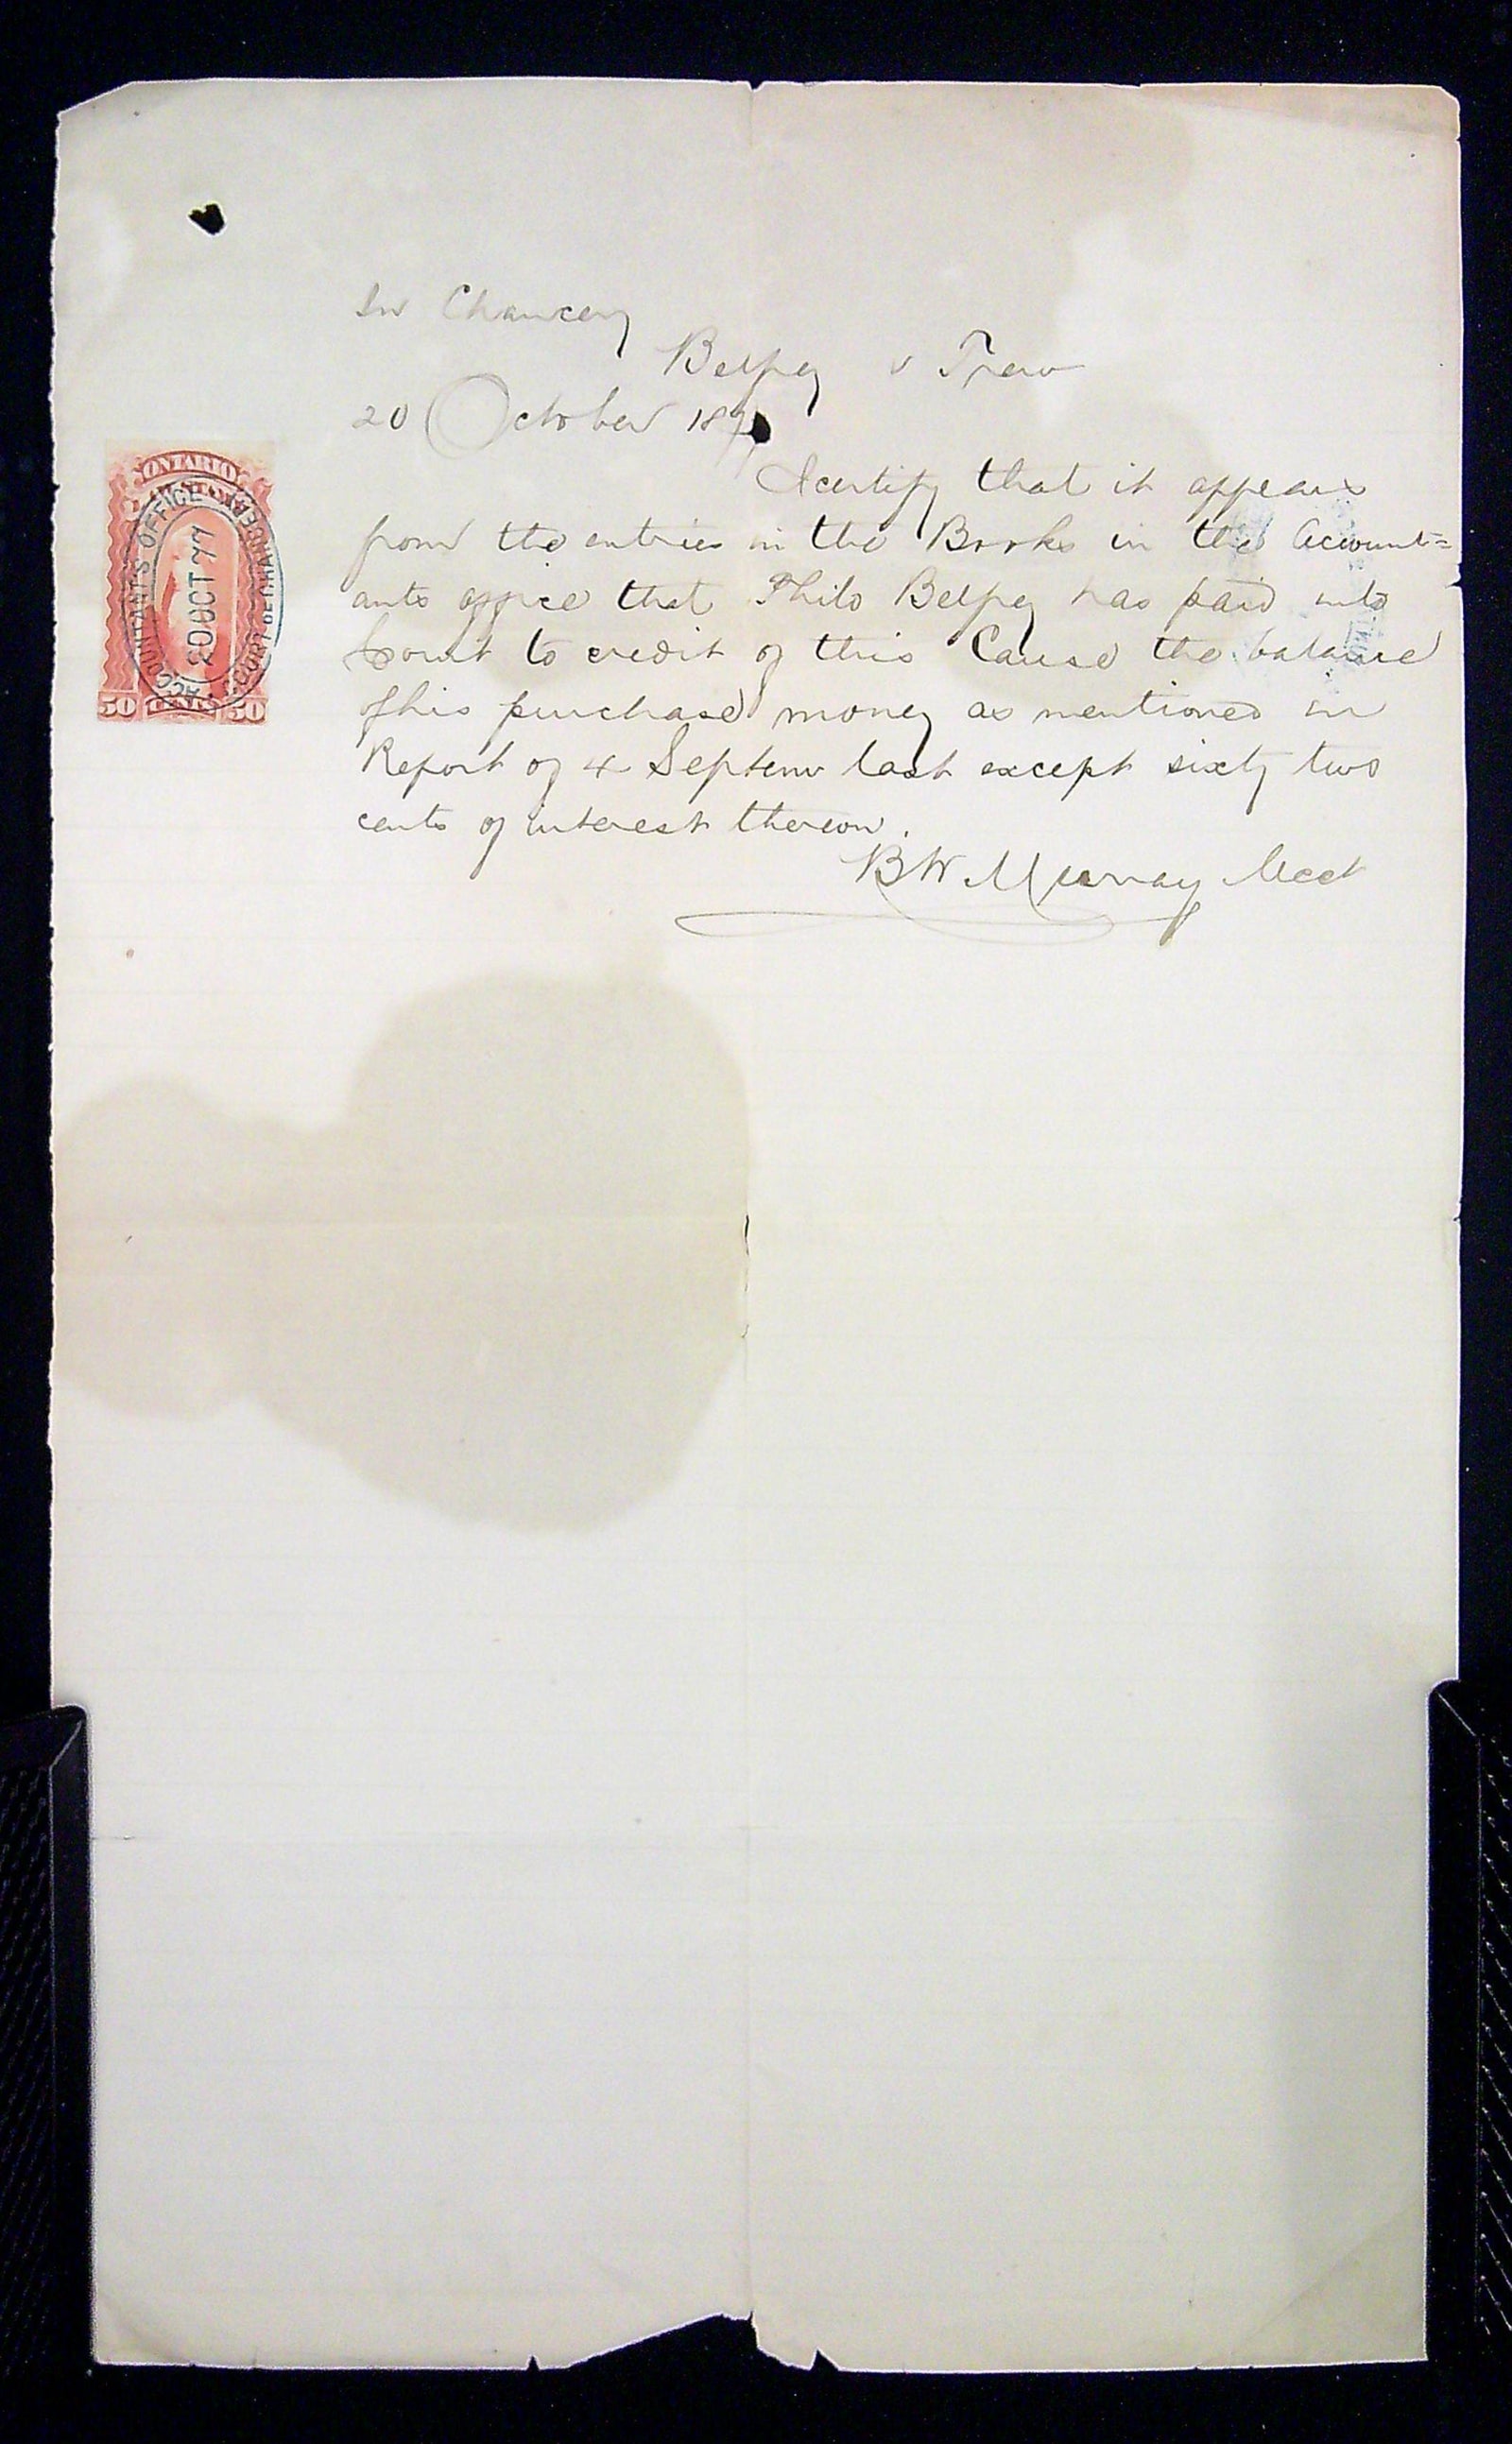 In Chancery
Belpey v Trew
20 October 187
I certify that it appears
from the entries in the Books in the Account=
ants office that Philo Belpey has paid into
Court to credit of this Cause the balance
of his purchase money as mentioned in
Report of 4 Septemr last except sixty two
cents of interest thereon.
BW Murray Acct
ONTARIO
ACCOUNTANT'S OFFICE
20 OCT 77
COURT OF CHANCERY
50 CENTS 50